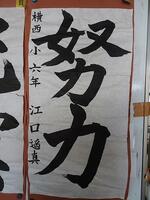 努力
横西小六年 江口遥真